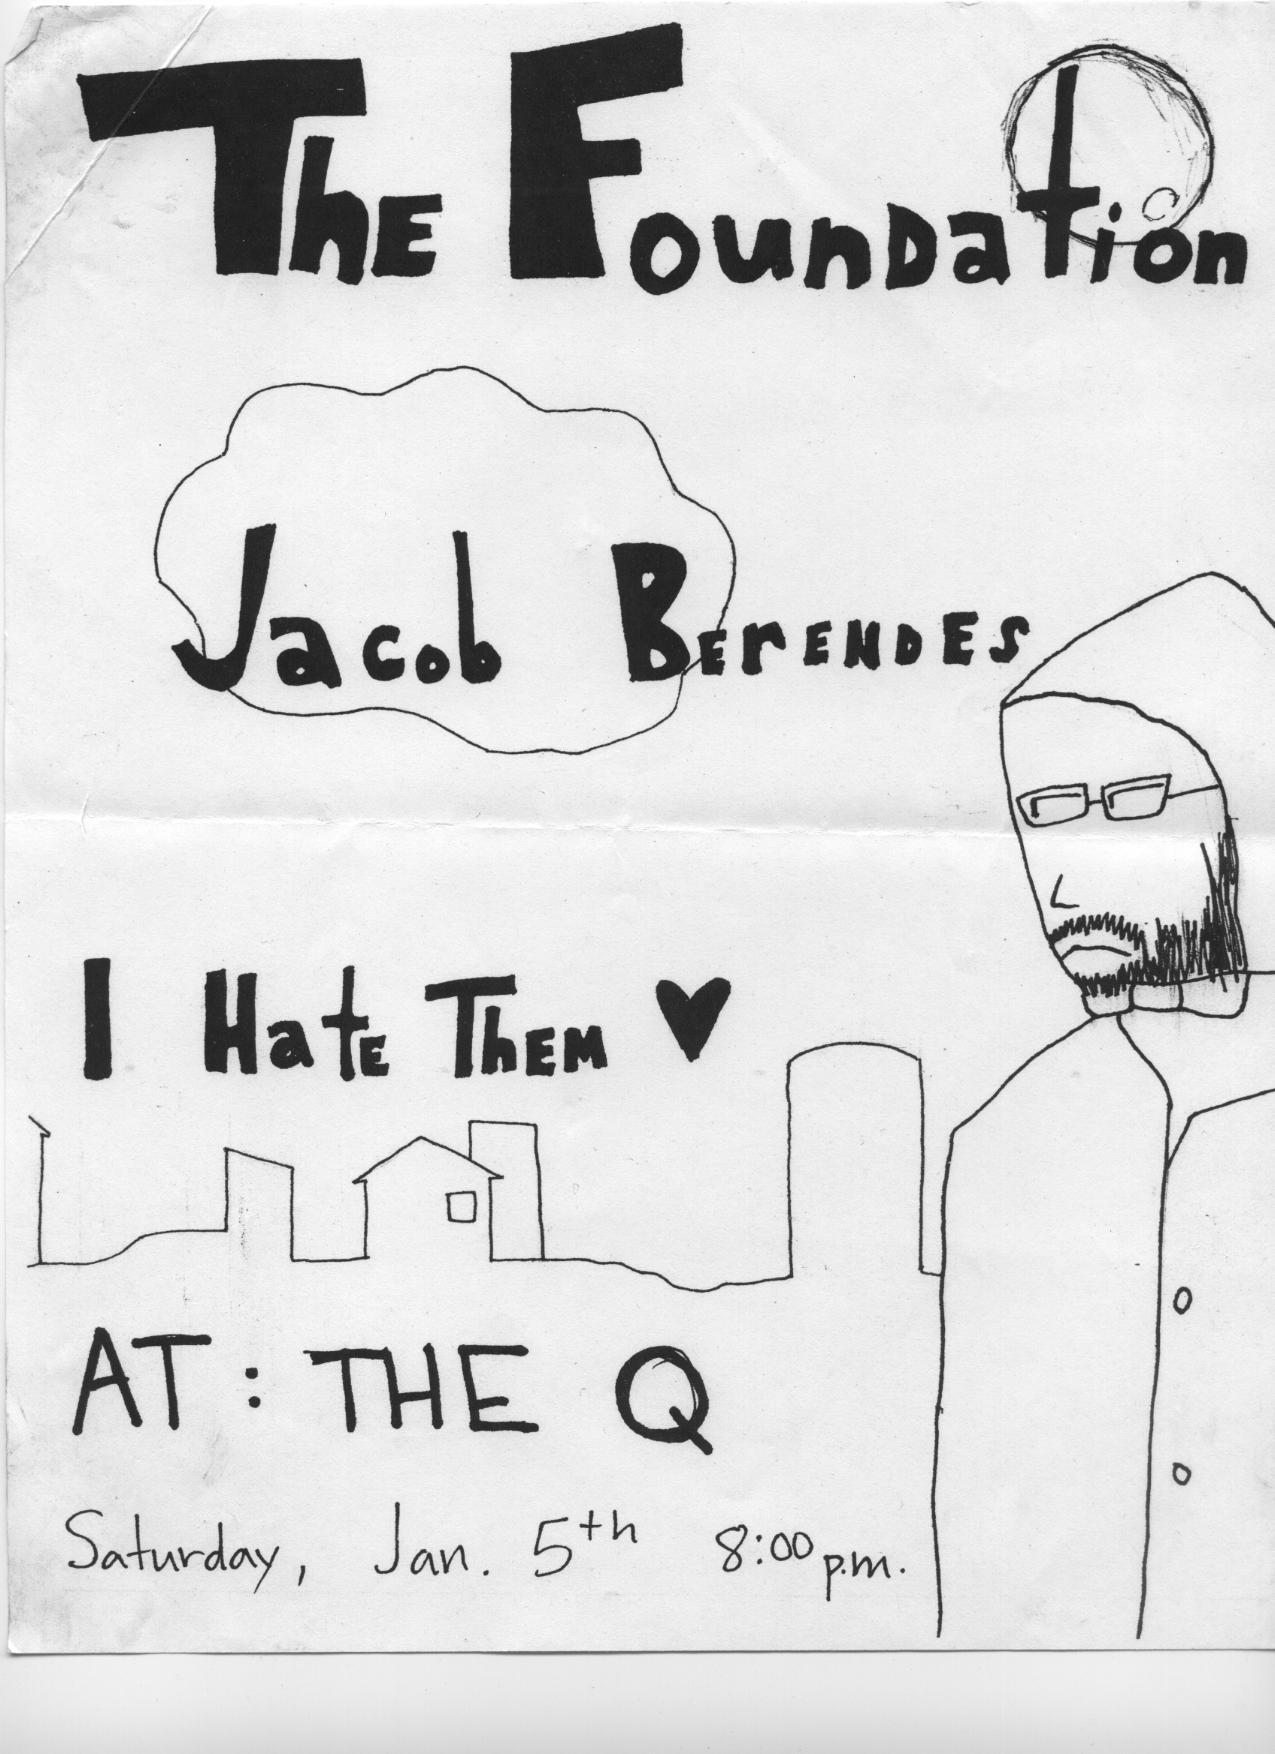 The Foundation
Jacob Berendes
I Hate Them ♥
AT: THE Q
Saturday, Jan. 5th 8:00 p.m.